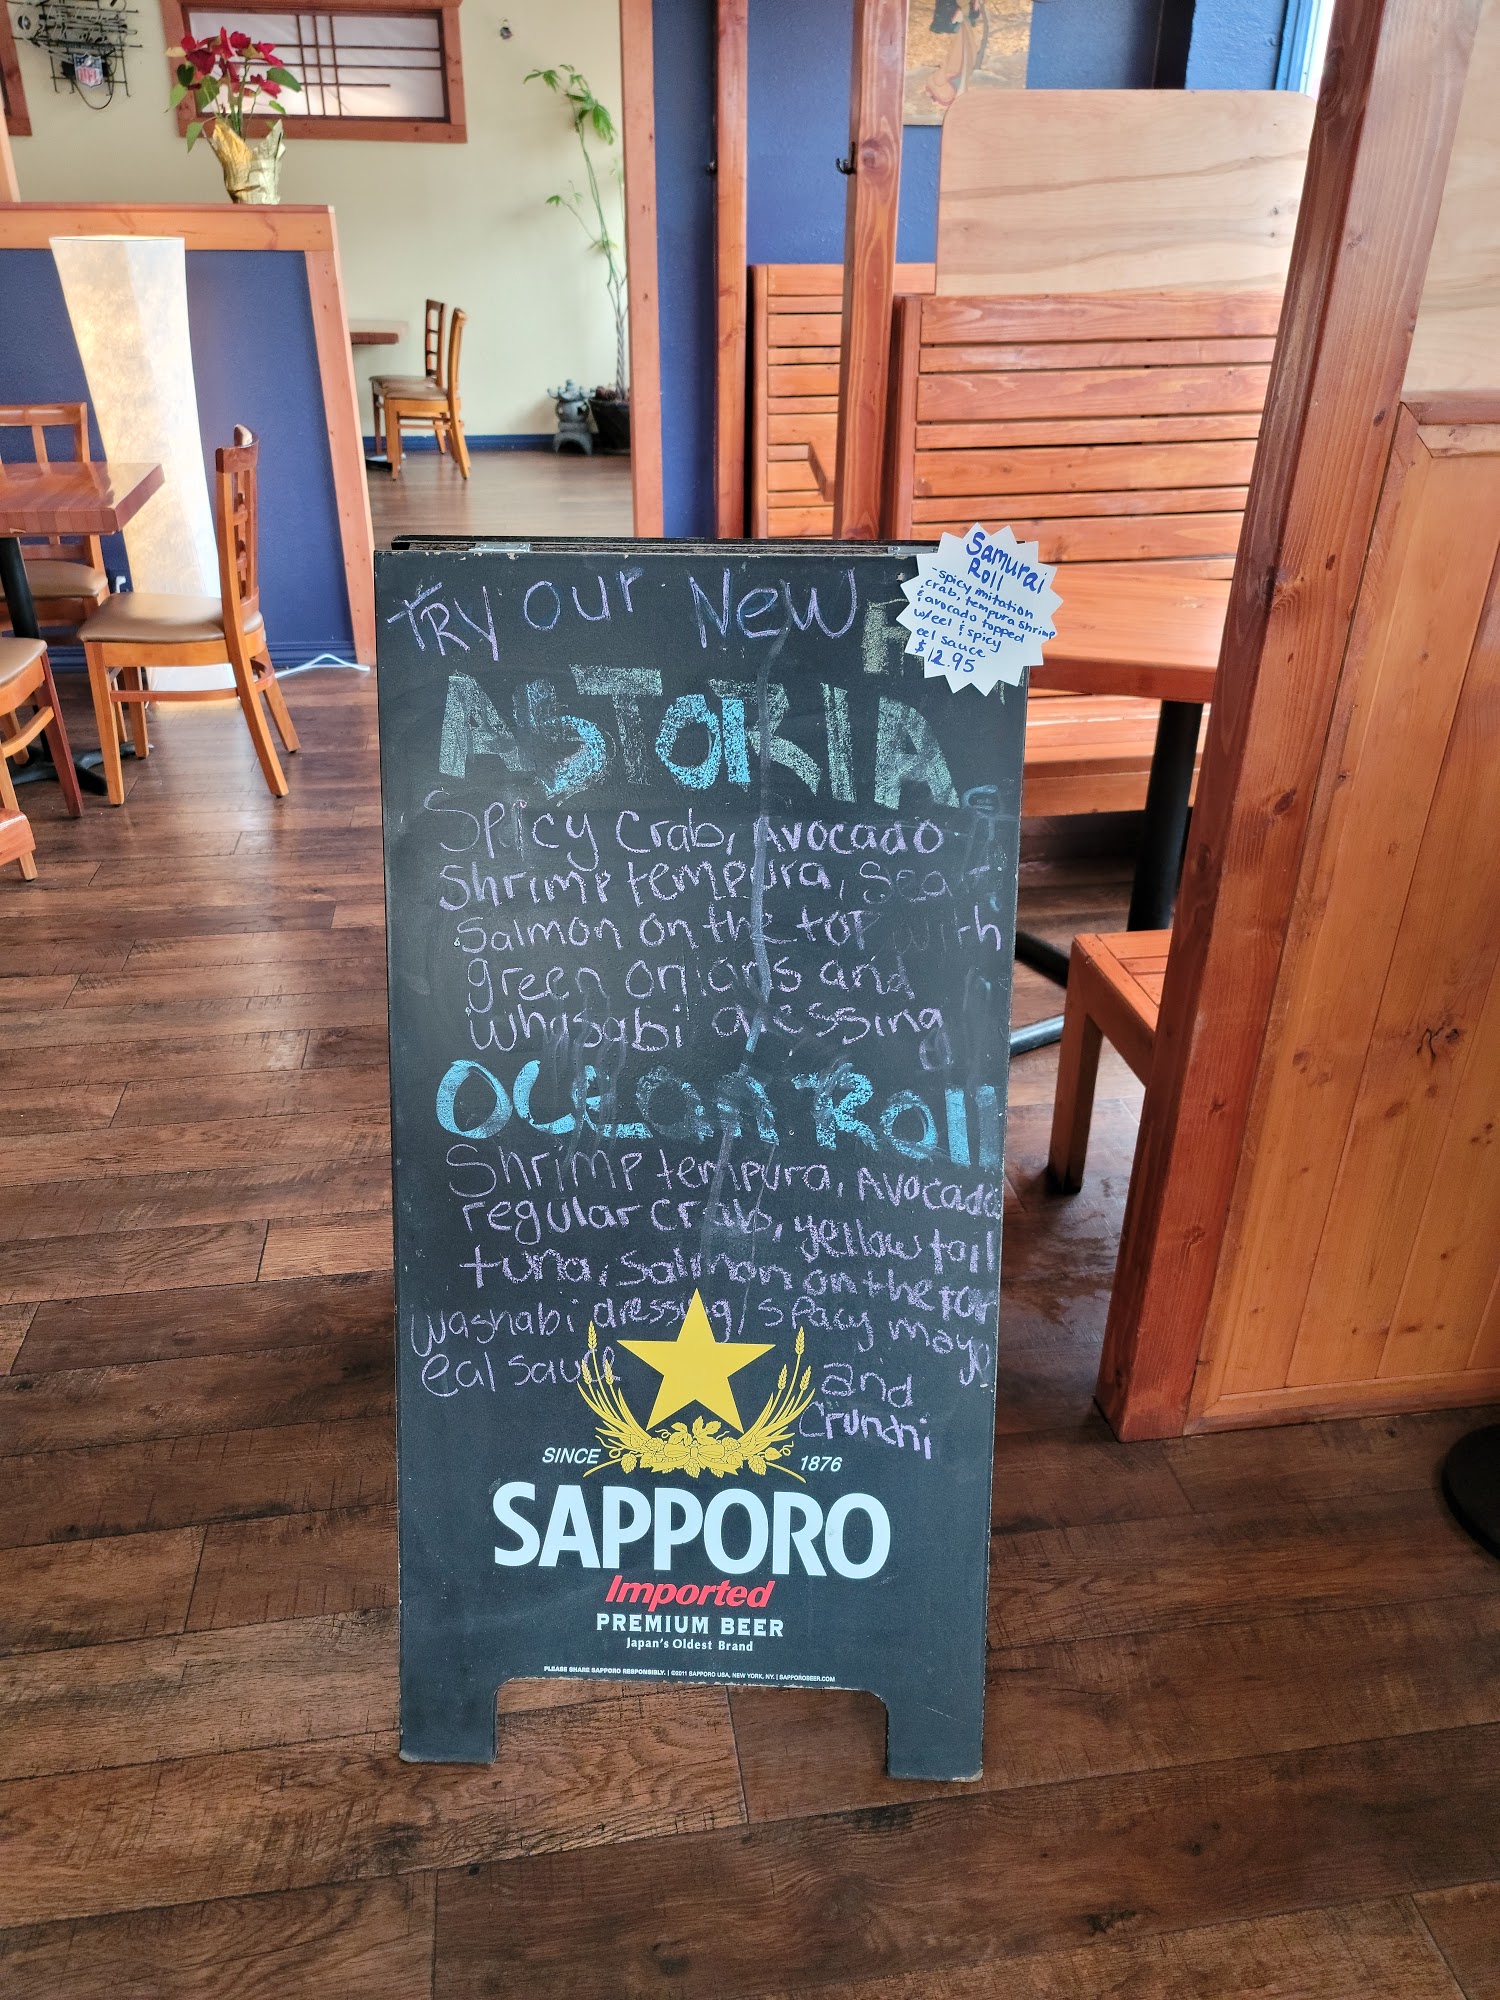 Try our New
Samurai
Roll
-spicy imitation
crab, tempura shrimp
& avocado topped
w/eel & spicy
eel sauce
$12.95
ASTORIA
Spicy Crab, Avocado
Shrimp tempura,
Salmon on the top with
green onions and
Whasabi dressing
Ocean Roll
Shrimp tempura, Avocado
regular crab, yellow tail
tuna, Salmon on the top
Washabi dressing, spacy mayo
eal sauce
and
Crunchi
SINCE 1876
SAPPORO
Imported
PREMIUM BEER
Japan's Oldest Brand
PLEASE SHARE SAPPORO RESPONSIBLY. | ©2011 SAPPORO USA, NEW YORK, NY. | SAPPOROBEER.COM
NFL